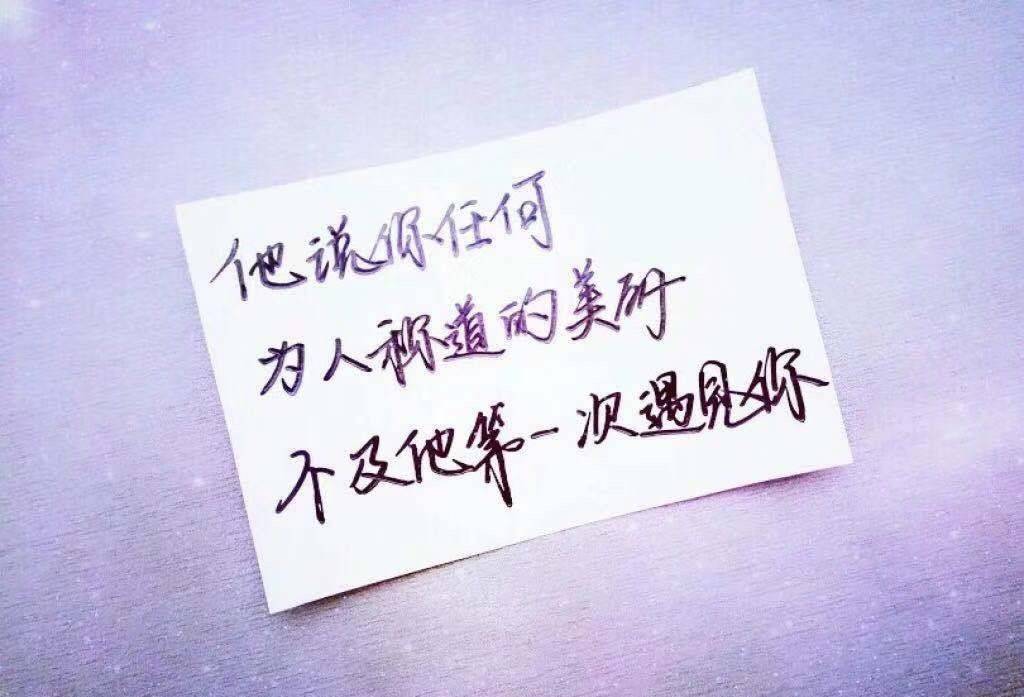 他说你任何
为人称道的美丽
不及他第一次遇见你